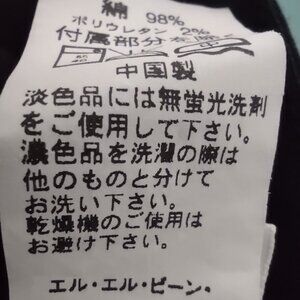 綿 98%
ポリウレタン 2%
付属部分を除く
中国製
淡色品には無蛍光洗剤
をご使用して下さい。
濃色品を洗濯の際は
他のものと分けて
お洗い下さい。
乾燥機のご使用は
お避け下さい。
エル・エル・ビーン・